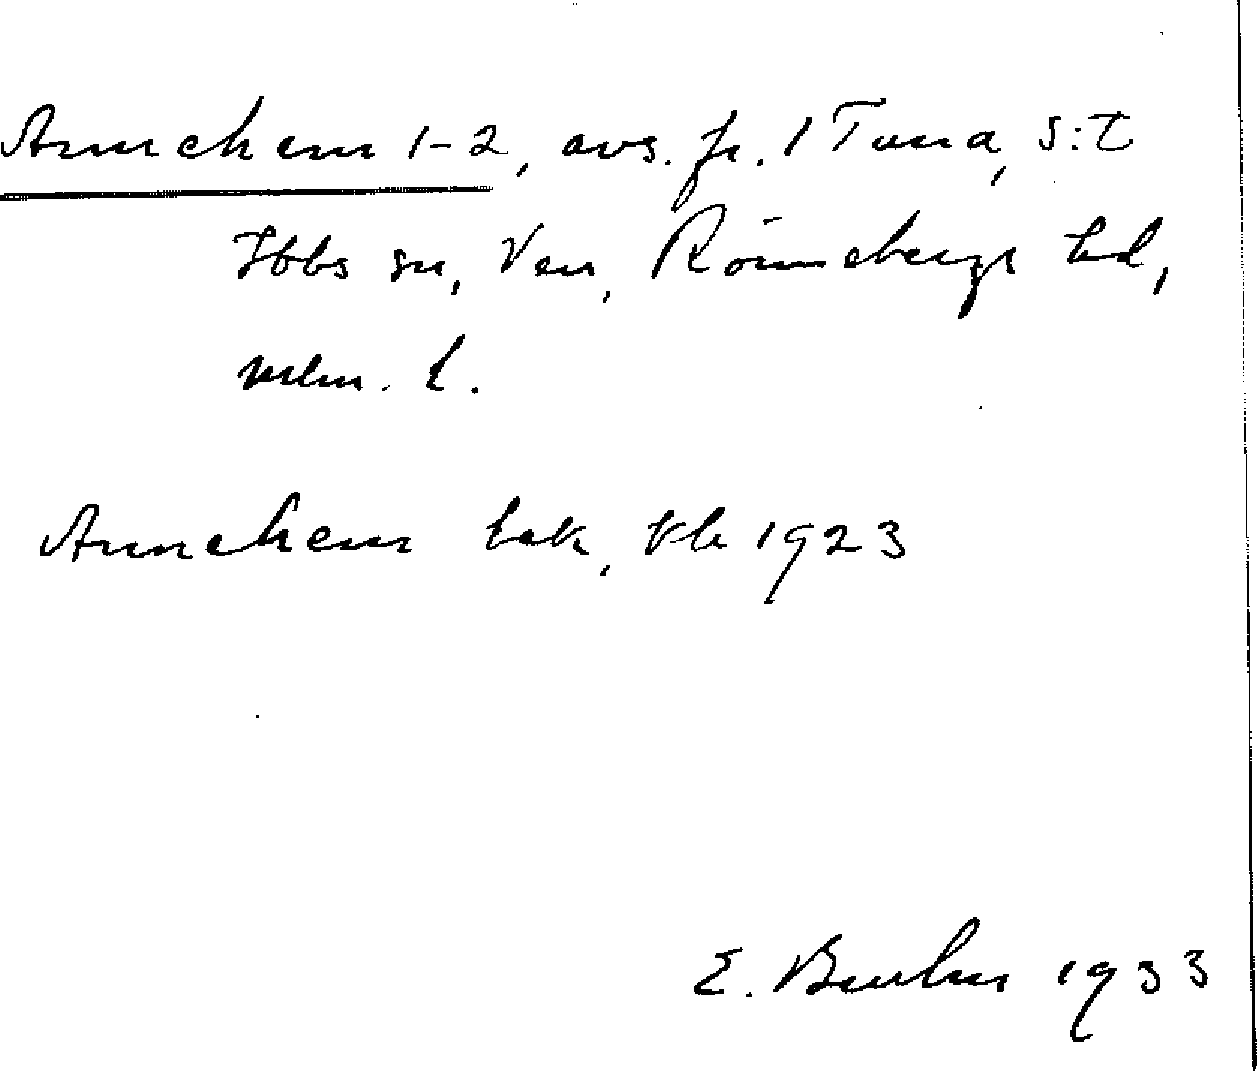 Annehem 1-2, avs. fr. 1 Tuna, S:t
Ibbs sn, Ven, Rönnebergs hd,
Mlm. l.
Annehem bok, kb 1923
E. 1933